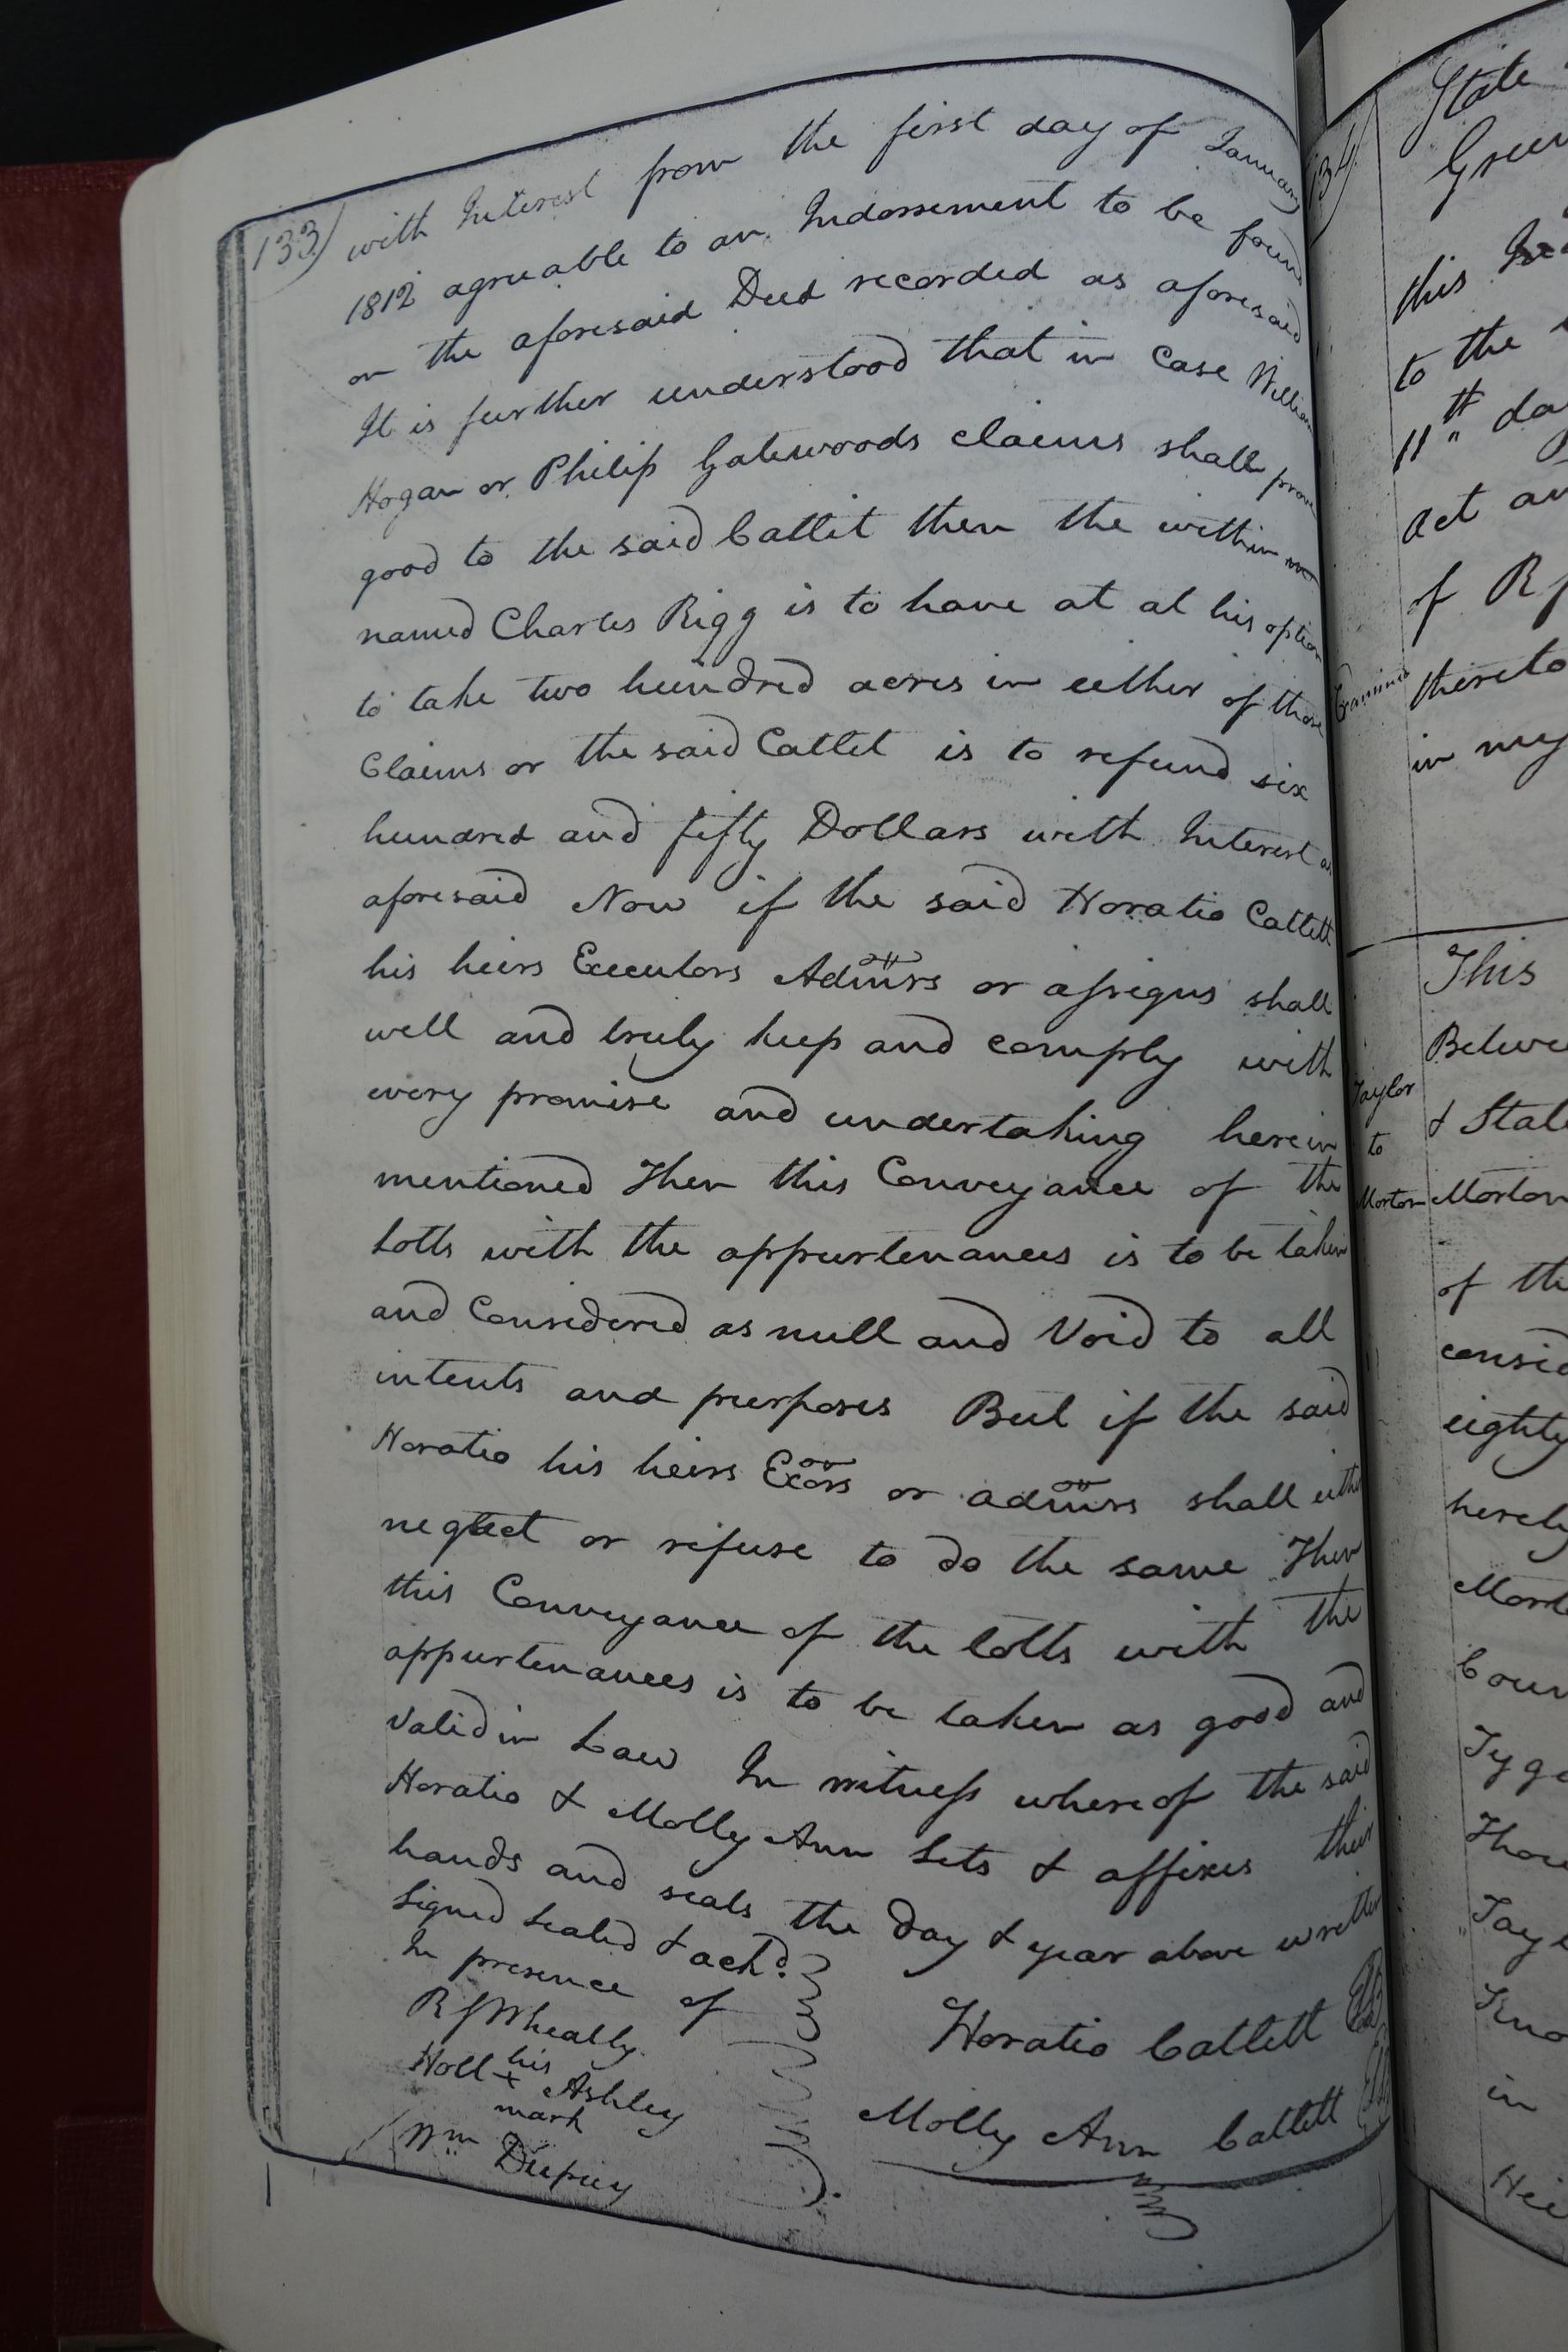 133) with Interest from the first day of January
1812 agreeable to an Indorsement to be found
on the aforesaid Deed recorded as aforesaid
It is further understood that in Case William
Hogan or Philip Gatewoods claims shall prove
good to the said Catlit then the within
named Charles Rigg is to have at at his option
to take two hundred acres in either of those
Claims or the said Catlet is to refund six
hundred and fifty Dollars with Interest as
aforesaid Now if the said Horatio Catlett
his heirs Executors Admrs or assigns shall
well and truly keep and comply with
every promise and undertaking herein
mentioned Then this Conveyance of the
Lotts with the appurtenances is to be taken
and Considered as null and Void to all
intents and purposes But if the said
Horatio his heirs Exors or admrs shall either
neglect or refuse to do the same Then
this Conveyance of the lotts with the
appurtenances is to be taken as good and
Valid in Law In witness whereof the said
Horatio & Molly Ann Sets & affixes their
hands and seals the day & year above written
Signed Sealed & ackd.
In presence of
Horatio Catlett
Holl his + mark Ashley
Molly Ann Catlett
Wm Dupuy
134)
State
Green
this
to the
11th da
Act an
of R
Examined
thereto
in my
This
Betwe
Taylor
to
Morton
& State
Morton
of the
consid
eighty
hereby
Mort
Coun
Tyga
Thou
in